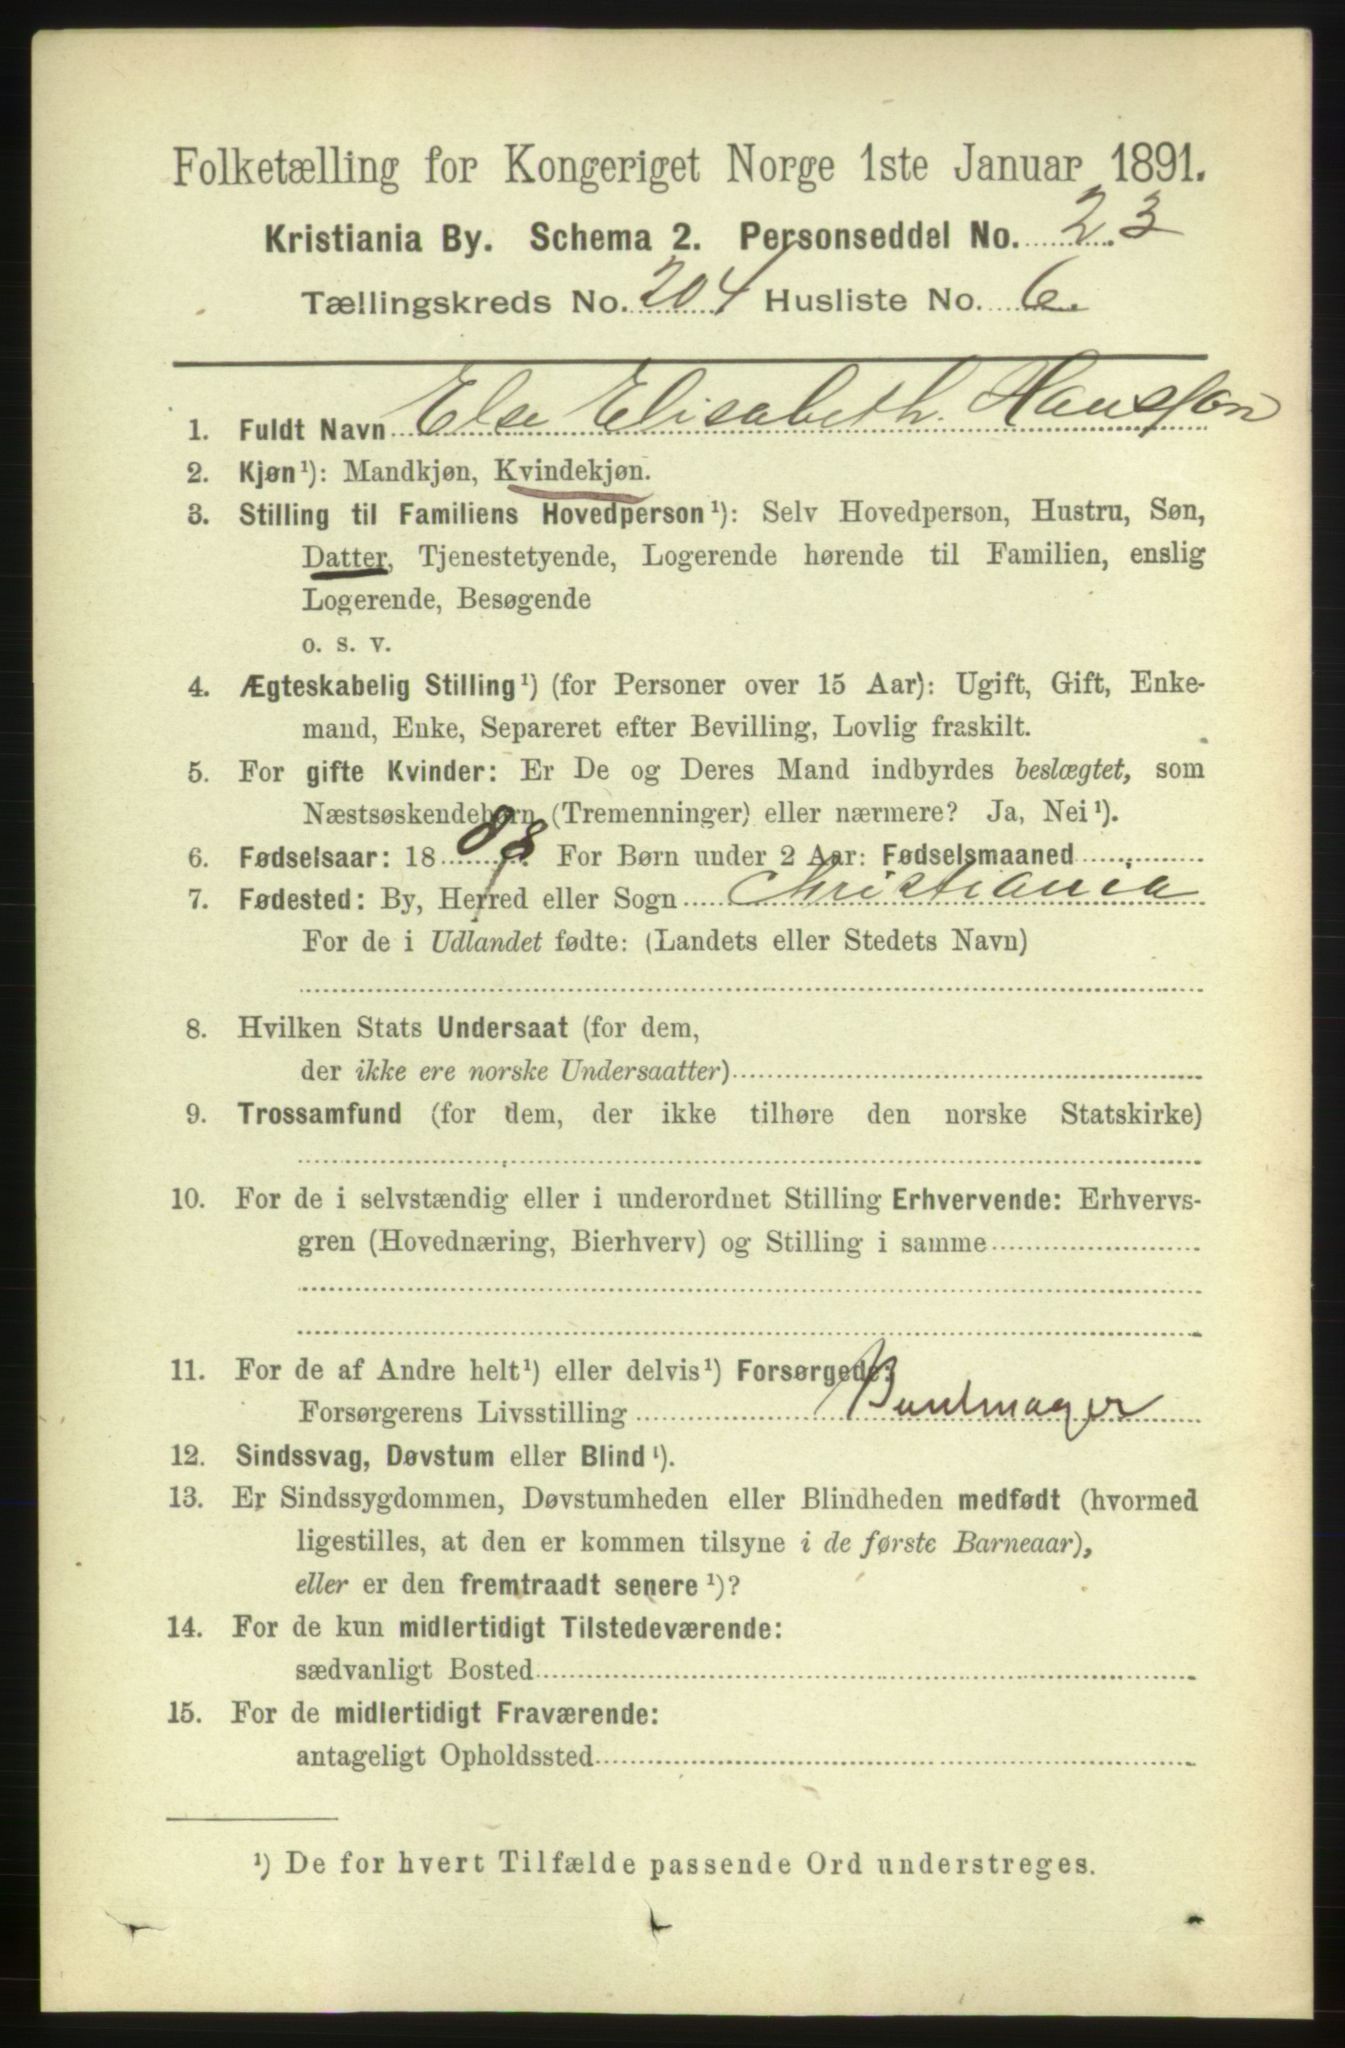 Folketælling for Kongeriget Norge 1ste Januar 1891.
Kristiania By. Schema 2. Personseddel No. 23
Tællingskreds No. 204 Husliste No. 6.
1. Fuldt Navn Else Elisabeth Hansson
2. Kjøn¹): Mandkjøn, Kvindekjøn.
3. Stilling til Familiens Hovedperson¹): Selv Hovedperson, Hustru, Søn,
Datter, Tjenestetyende, Logerende hørende til Familien, enslig
Logerende, Besøgende
o. s. v.
4. Ægteskabelig Stilling¹) (for Personer over 15 Aar): Ugift, Gift, Enke-
mand, Enke, Separeret efter Bevilling, Lovlig fraskilt.
5. For gifte Kvinder: Er De og Deres Mand indbyrdes beslægtet, som
Næstsøskendebørn (Tremenninger) eller nærmere? Ja, Nei¹).
6. Fødselsaar: 18 For Børn under 2 Aar: Fødselsmaaned
7. Fødested: By, Herred eller Sogn Christiania
For de i Udlandet fødte: (Landets eller Stedets Navn)
8. Hvilken Stats Undersaat (for dem,
der ikke ere norske Undersaatter)
9. Trossamfund (for dem, der ikke tilhøre den norske Statskirke)
10. For de i selvstændig eller i underordnet Stilling Erhvervende: Erhvervs-
gren (Hovednæring, Bierhverv) og Stilling i samme
11. For de af Andre helt¹) eller delvis¹) Forsørgede:
Forsørgerens Livsstilling
12. Sindssvag, Døvstum eller Blind¹).
13. Er Sindssygdommen, Døvstumheden eller Blindheden medfødt (hvormed
ligestilles, at den er kommen tilsyne i de første Barneaar),
eller er den fremtraadt senere¹)?
14. For de kun midlertidigt Tilstedeværende:
sædvanligt Bosted
15. For de midlertidigt Fraværende:
antageligt Opholdssted
¹) De for hvert Tilfælde passende Ord understreges.